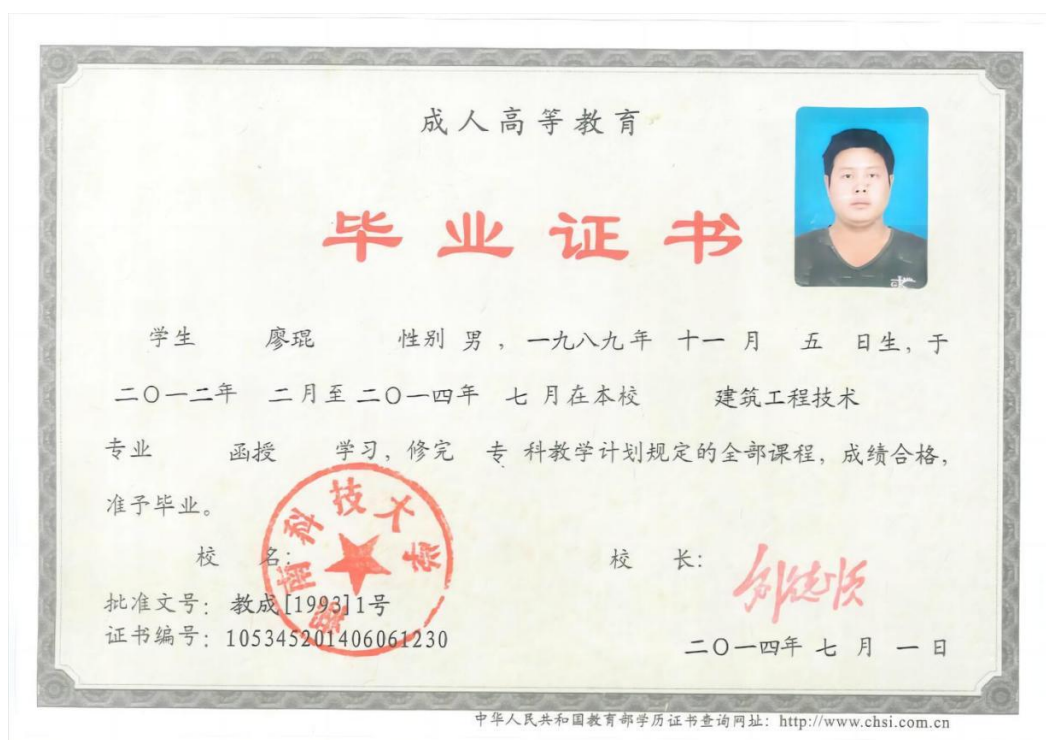 成人高等教育
毕业证书
学生 廖琨 性别 男，一九八九年 十一 月 五 日生，于
二〇一二年 二月至二〇一四年 七 月在本校 建筑工程技术
专业 函授 学习，修完 专 科教学计划规定的全部课程，成绩合格，
准予毕业。
校 名： 校 长：
湖南科技大学
批准文号：教成[1993]1号
证书编号：105345201406061230
二〇一四年 七 月 一 日
中华人民共和国教育部学历证书查询网址：http://www.chsi.com.cn